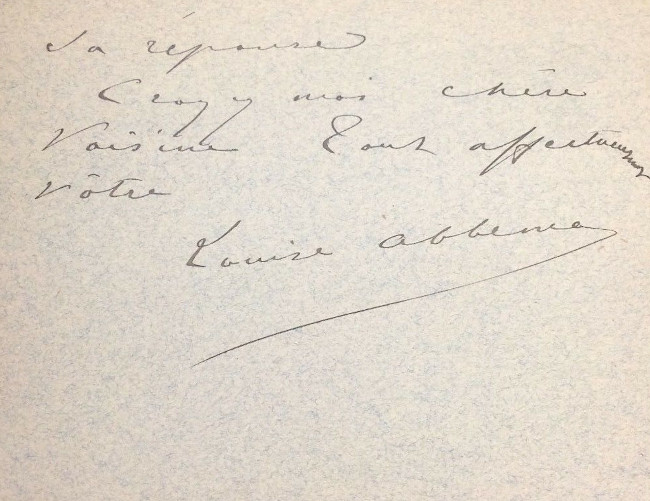 sa réponse
Croyez moi chère
Voisine Tout affectueusement
vôtre
Louise Abbema